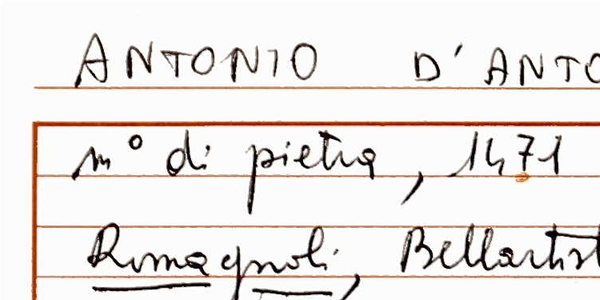 ANTONIO D'ANTO
m° di pietra, 1471
Romagnoli, Bellartist